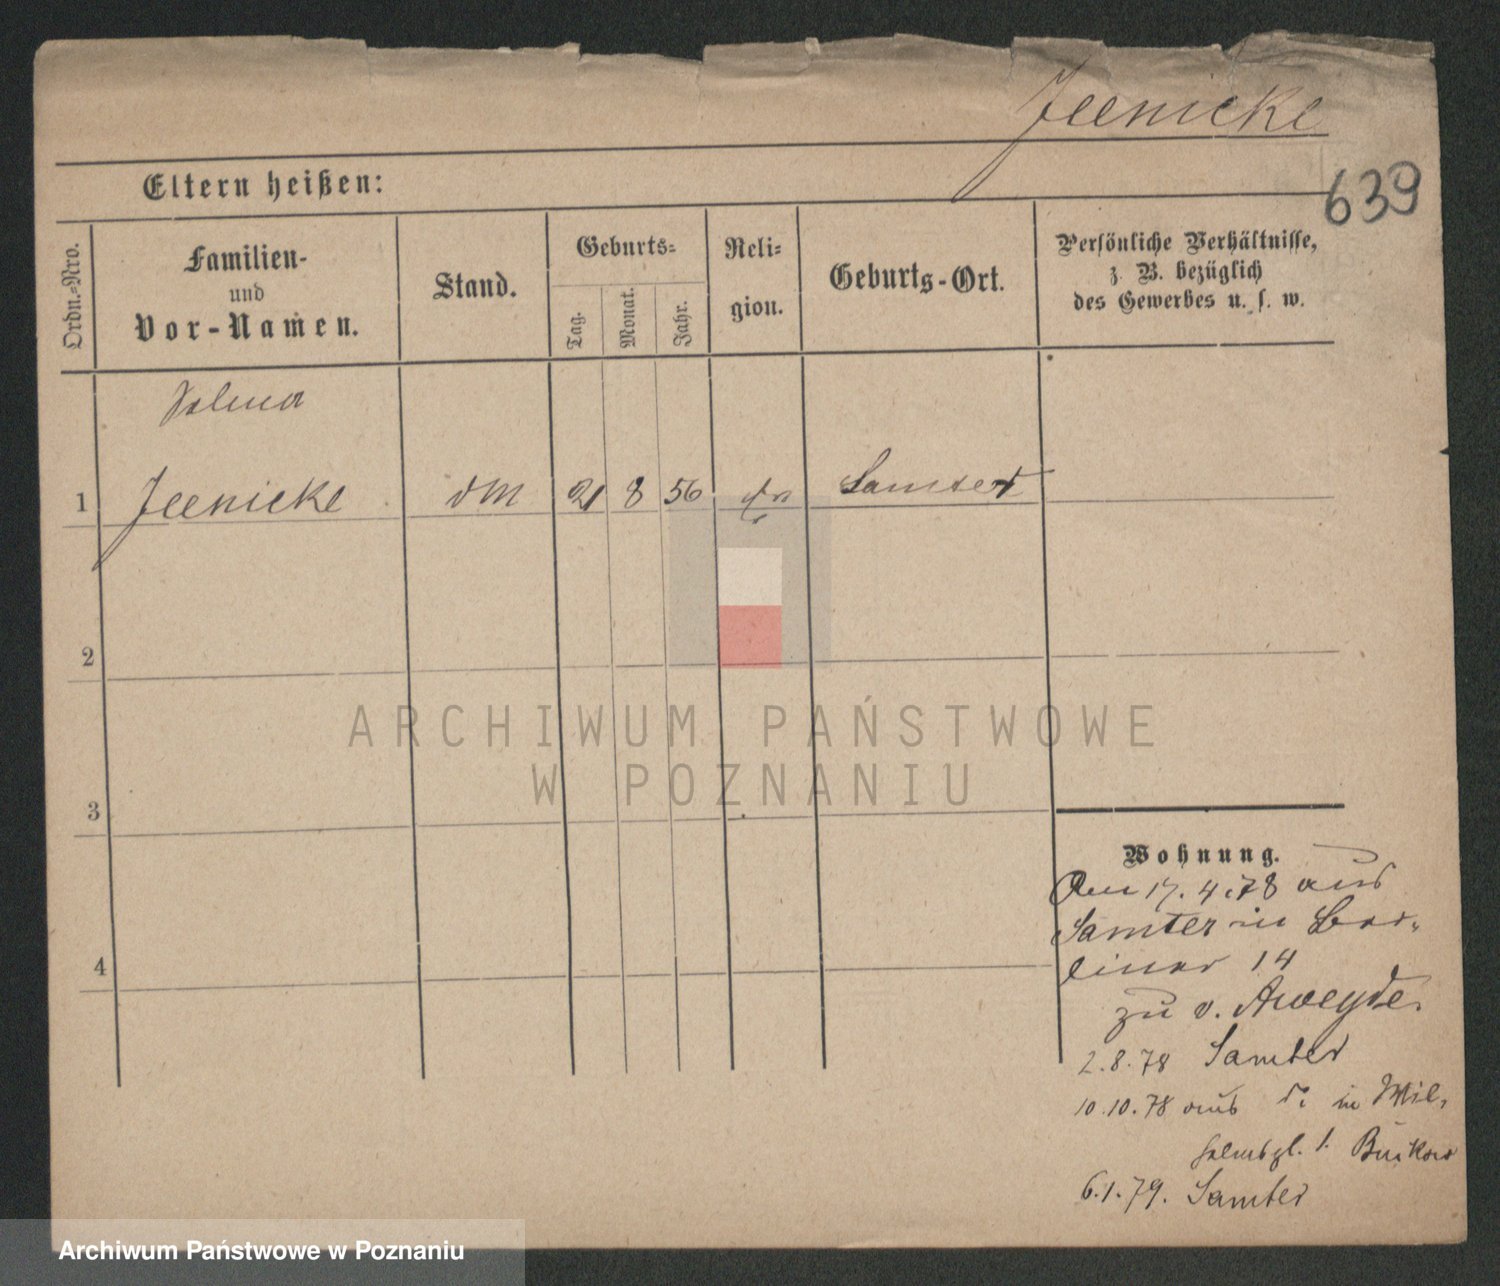 Jeenicke
639
Eltern heißen:
Ordn.-Nro.
Familien-
und
Vor-Namen.
Stand.
Geburts-
Tag.
Monat.
Jahr.
Reli-
gion.
Geburts-Ort.
Persönliche Verhältnisse,
z. B. bezüglich
des Gewerbes u. s. w.
Selma
1 Jeenicke 21 8 56 Samter
2
3
4
Wohnung.
Am 17.4.78 aus
Samter in Ber-
liner 14
zu v. Aweyde.
2.8.78 Samter
10.10.78 aus d. in Wil-
helmspl. 1. Bukow
6.1.79. Samter
ARCHIWUM PAŃSTWOWE
W POZNANIU
Archiwum Państwowe w Poznaniu